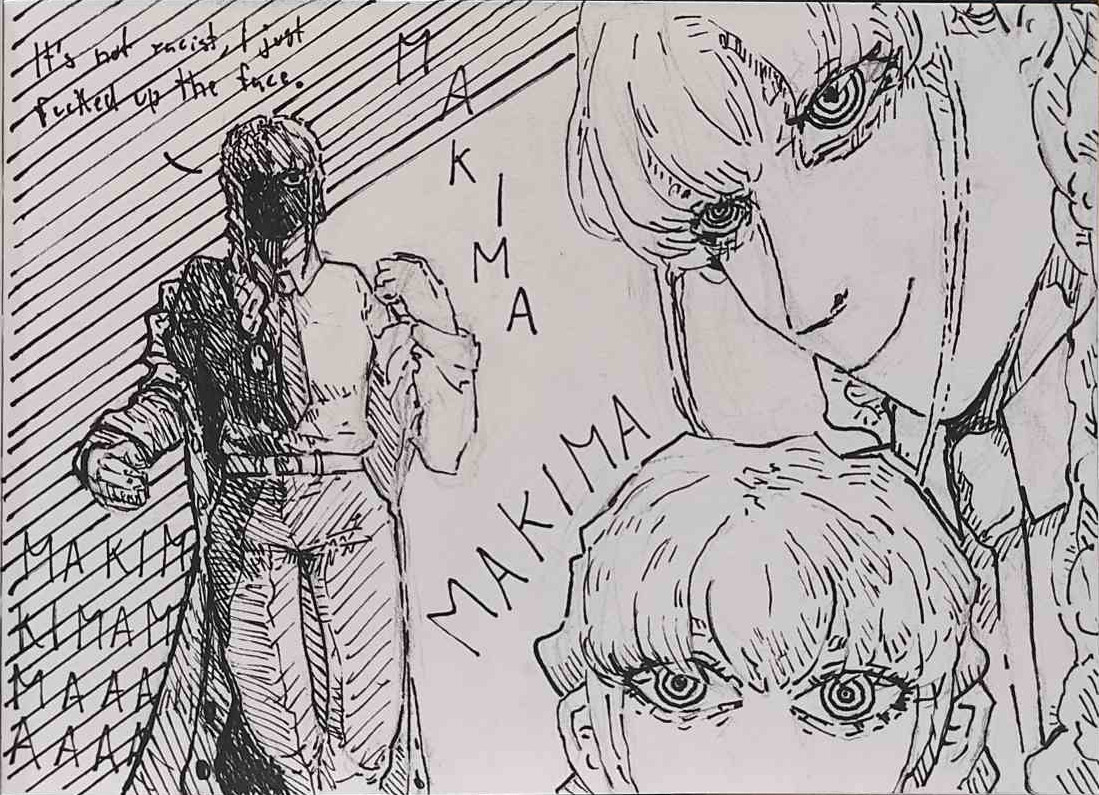 It's not racist, I just
fucked up the face.
MAKIMA
MAKIMA
MAKIM
KIMAM
MAAA
AAAA